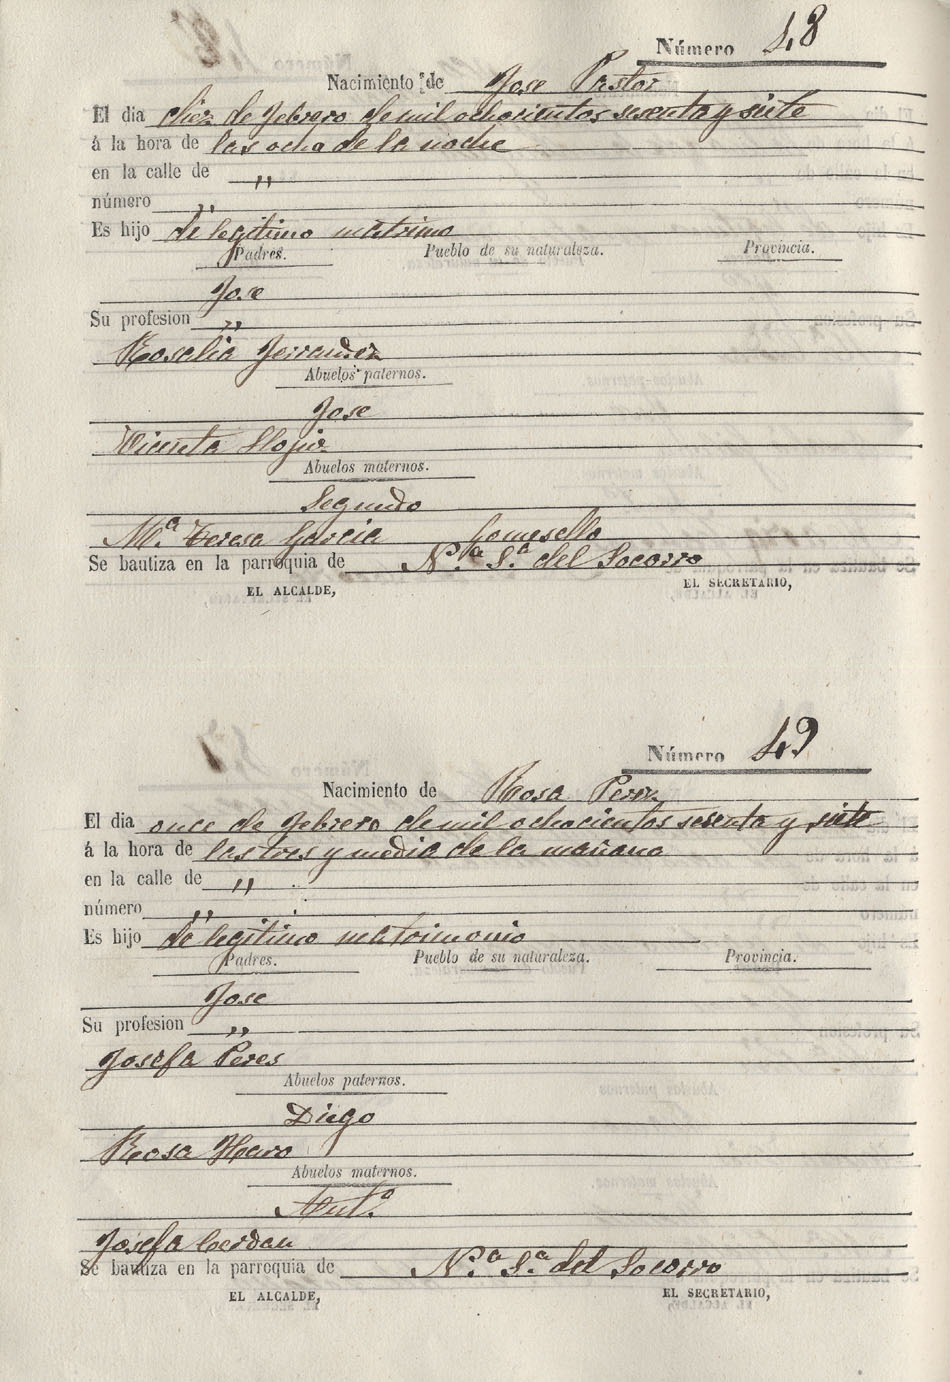 Número 48
Nacimiento de Jose Pastor
El dia diez de Febrero de mil ochocientos sesenta y siete
á la hora de las ocho de la noche
en la calle de "
número "
Es hijo de legitimo matrimo
Padres. Pueblo de su naturaleza. Provincia.
Jose
Su profesion "
Rosalia Ferrandez
Abuelos paternos.
Jose
Vicenta Llopiz
Abuelos maternos.
Segundo
Mª Teresa Garcia
Se bautiza en la parroquia de N.ª S.ª del Socorro
EL ALCALDE, EL SECRETARIO,
Número 49
Nacimiento de Rosa Perez
El dia once de Febrero de mil ochocientos sesenta y siete
á la hora de las tres y media de la mañana
en la calle de "
número "
Es hijo de legitimo matrimonio
Padres. Pueblo de su naturaleza. Provincia.
Jose
Su profesion "
Josefa Peres
Abuelos paternos.
Diego
Rosa Haro
Abuelos maternos.
Antº
Josefa Cerdan
Se bautiza en la parroquia de N.ª S.ª del Socorro
EL ALCALDE, EL SECRETARIO,